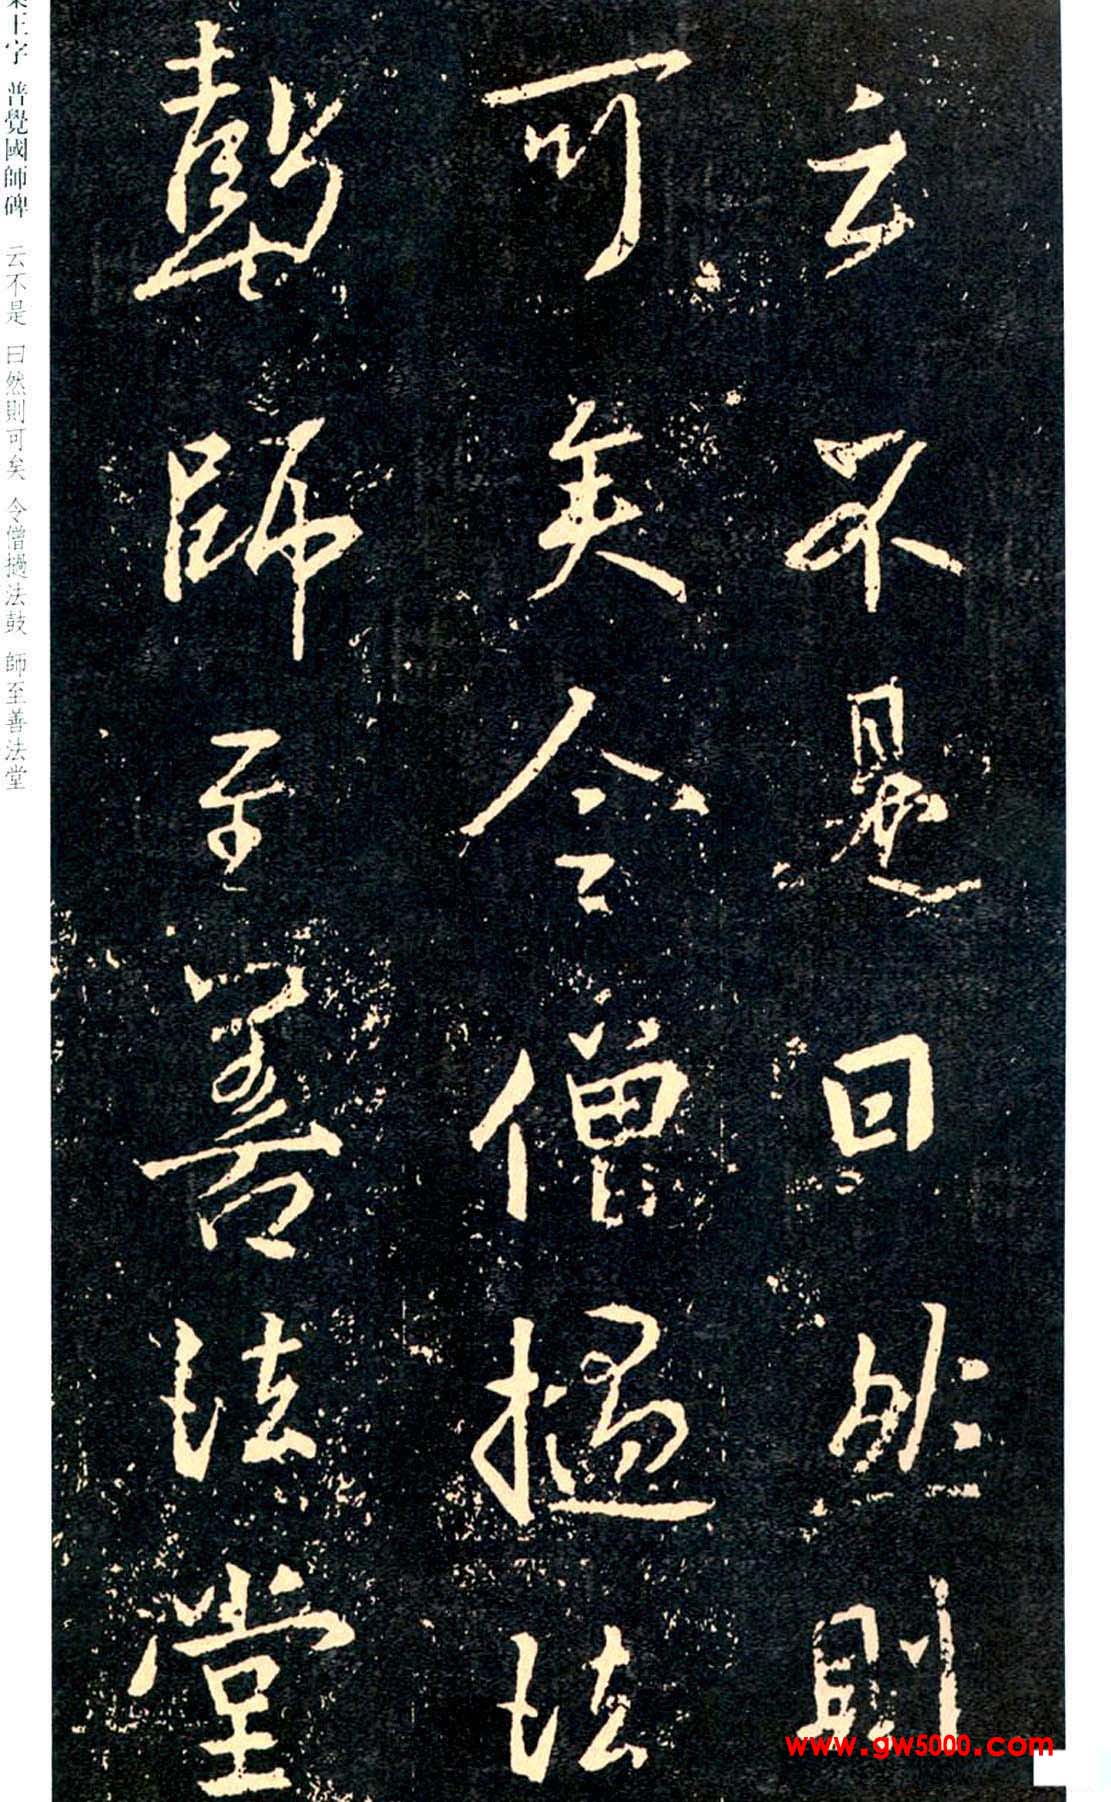 云不是曰然則
可矣令僧撾法
鼓師至善法堂
王字 普覺國師碑 云不是 曰然則可矣 令僧撾法鼓 師至善法堂
www.gw5000.com